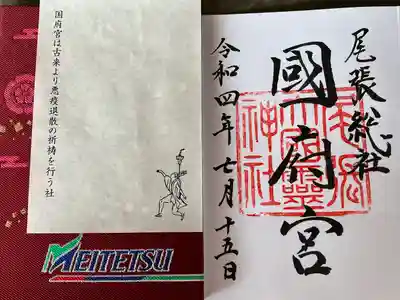 国府宮は古来より悪疫退散の祈祷を行う社
MEITETSU
尾張総社
國府宮
令和四年七月十五日